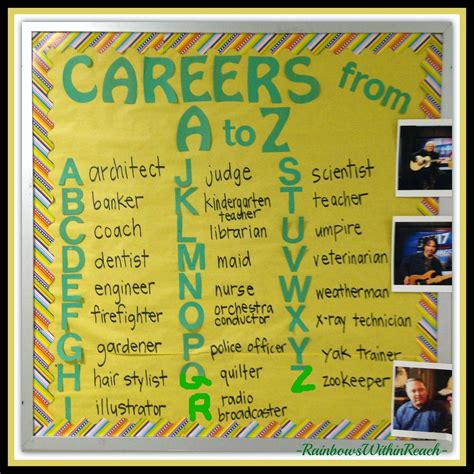 CAREERS from
A to Z
A architect
B banker
C coach
D dentist
E engineer
F firefighter
G gardener
H hair stylist
I illustrator
J judge
K kindergarten
teacher
L librarian
M maid
N nurse
O orchestra
conductor
P police officer
Q quilter
R radio
broadcaster
S scientist
T teacher
U umpire
V veterinarian
W weatherman
X x-ray technician
Y yak trainer
Z zookeeper
17
-RainbowsWithinReach-